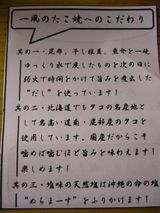 一風のたこ焼へのこだわり
其の一・昆布、干し椎茸、魚介と一晩
ゆっくり水で戻したものを次の日に
弱火で時間をかけて旨みを煮出した
“だし”を使っています！
其の二・北海道でもタコの名産地と
して名高い鹿部・尾部産のタコを
使用しています。国産だからこそ
噛めば噛むほど旨みを味わえます！
楽しめます！
其の三・塩味の天然塩は沖縄の命の塩
“ぬちまーす”をふりかけます！